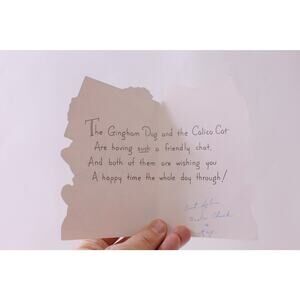 The Gingham Dog and the Calico Cat
Are having such a friendly chat,
And both of them are wishing you
A happy time the whole day through!